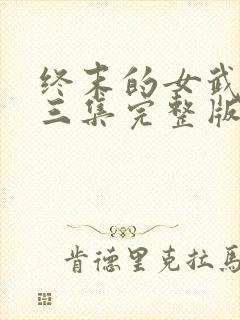 终末的女武
三集完整版
肯德里克拉马